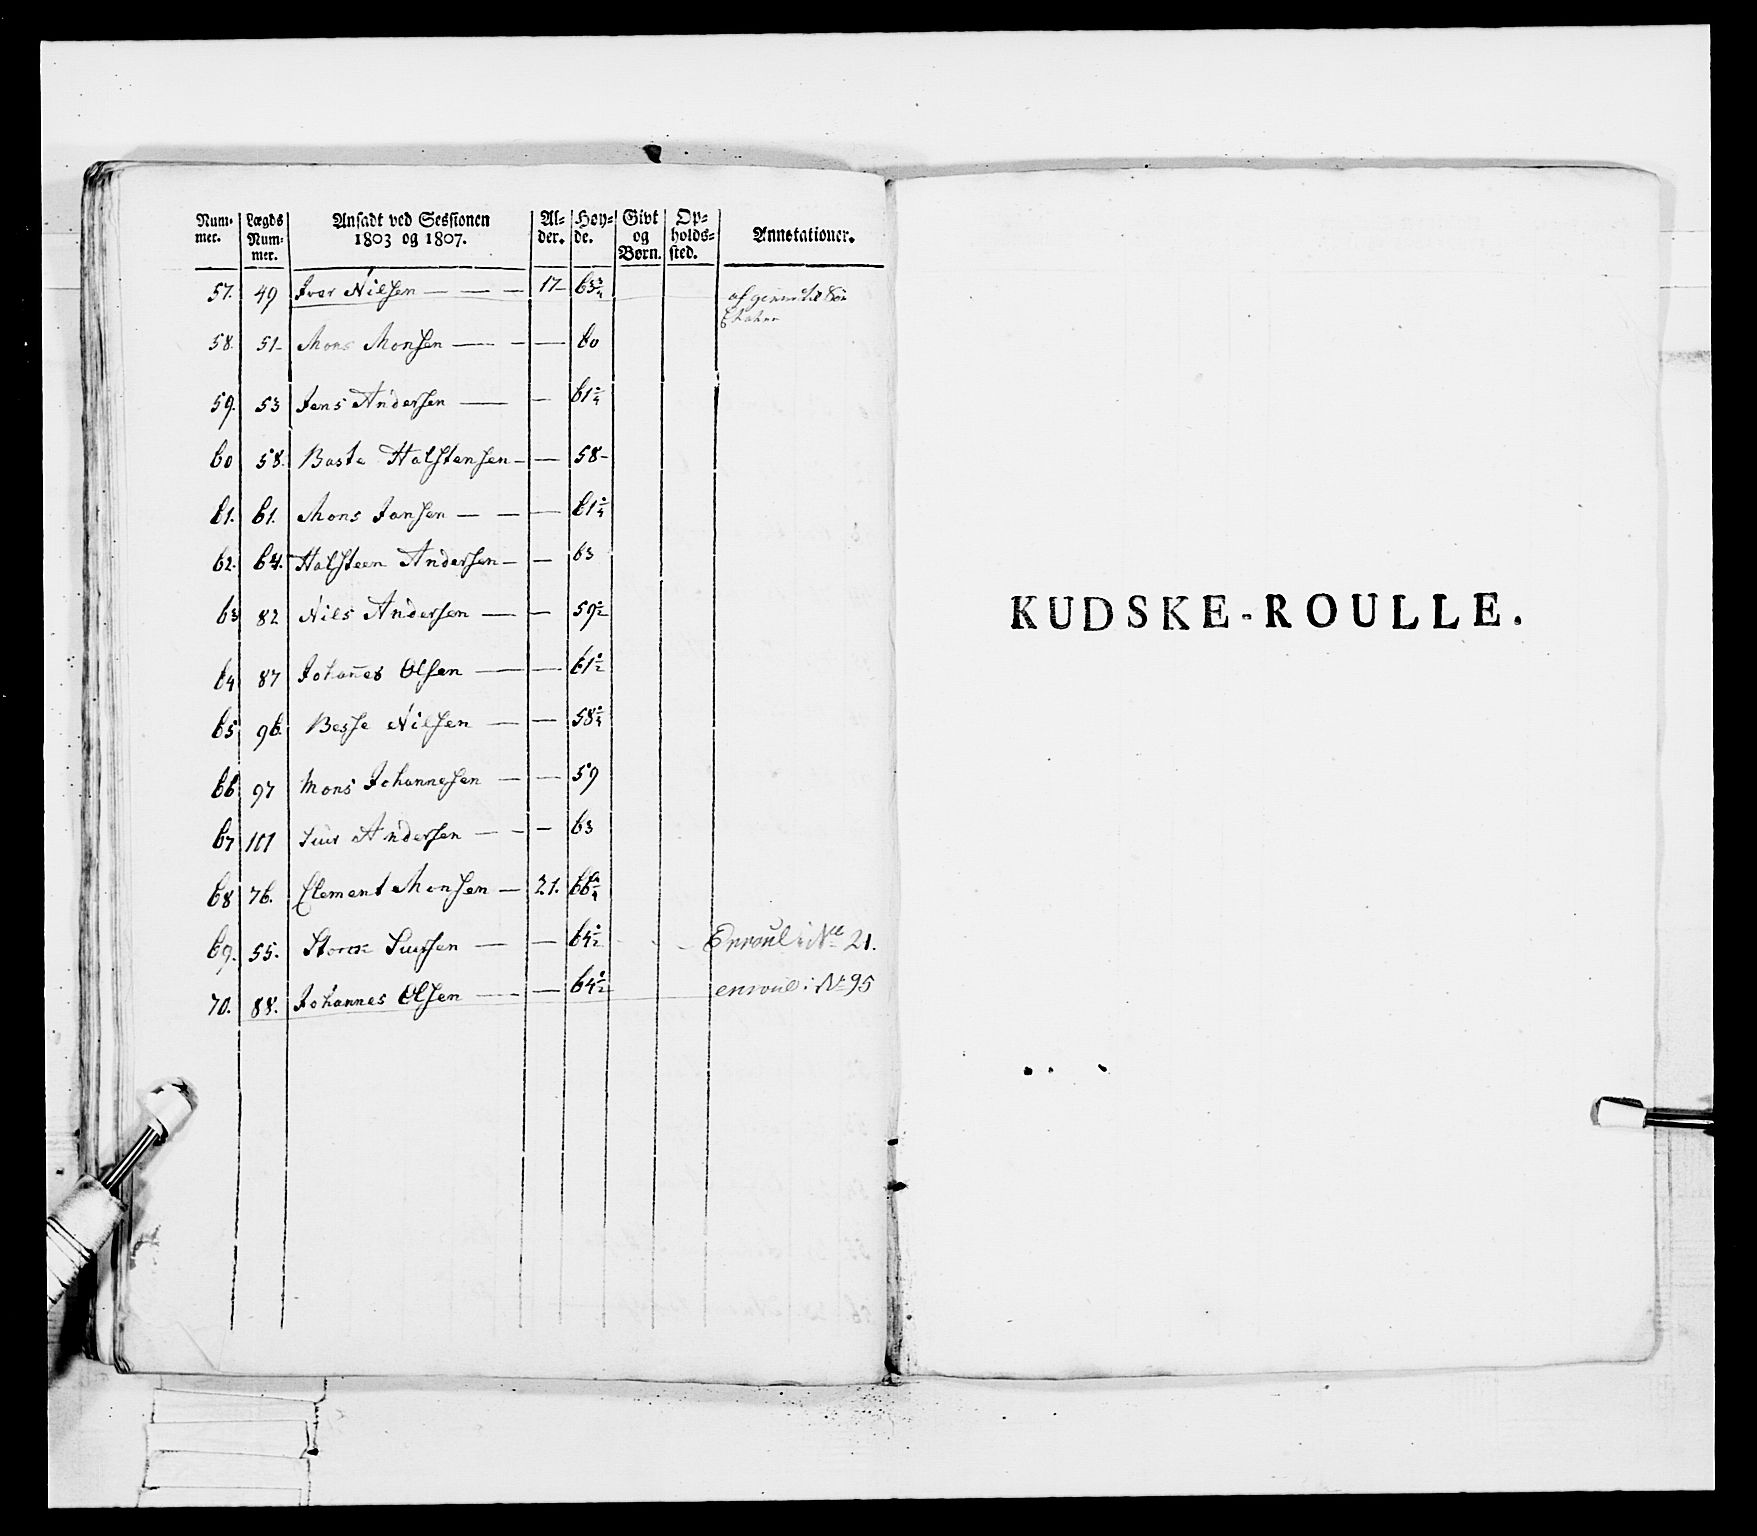 Num- mer. Lægds Num- mer. Ansadt ved Sessionen 1803 og 1807. Al- der. Høy- de. Givt og Børn. Op- holds- sted. Annotationer.
57. 49 Iver Nilsen — — — 17- 63 3/4
58. 51- Mons Monsen — — — 60
59. 53 Jens Andersen — — 61 1/4
60 58. Baste Halstensen - — 58-
61. 61. Mons Jansen — — — 61 1/4
62. 64. Halsteen Andersen — — 63
63 82 Nils Andersen — — 59 1/2
64 87 Johanes Olsen — — 61 1/2
65 96. Besse Nilsen — — 58 1/4
66 97 Mons Johannesen — — 59
67 101 Siur Andersen — - — 63
68 76. Clement Monsen — 21. 66 1/4
69. 55. Siursen — — 64 1/2 Enroul i No 21.
70. 88. Johannes Olsen — — 64 1/2 enroul i No 95
KUDSKE-ROULLE.